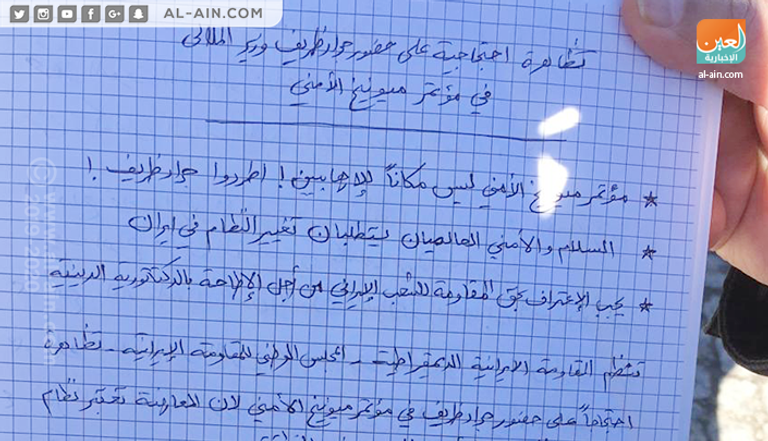 AL-AIN.COM
العين
الإخبارية
al-ain.com
تظاهرة احتجاجية على حضور جواد ظريف وزير الملالي
في مؤتمر ميونيخ الأمني
* مؤتمر ميونيخ الأمني ليس مكاناً للإرهابيين! اطردوا جواد ظريف!
* السلام والأمني العالميان يتطلبان تغيير النظام في ايران
* يجب الإعتراف بحق المقاومة للشعب الإيراني من أجل الإطاحة بالدكتاتورية الدينية
تنظم المقاومة الايرانية الديمقراطية - المجلس الوطني للمقاومة الإيرانية - تظاهرة
احتجاجاً على حضور جواد ظريف في مؤتمر ميونيخ الأمني لان المعارضة تعتبر نظام